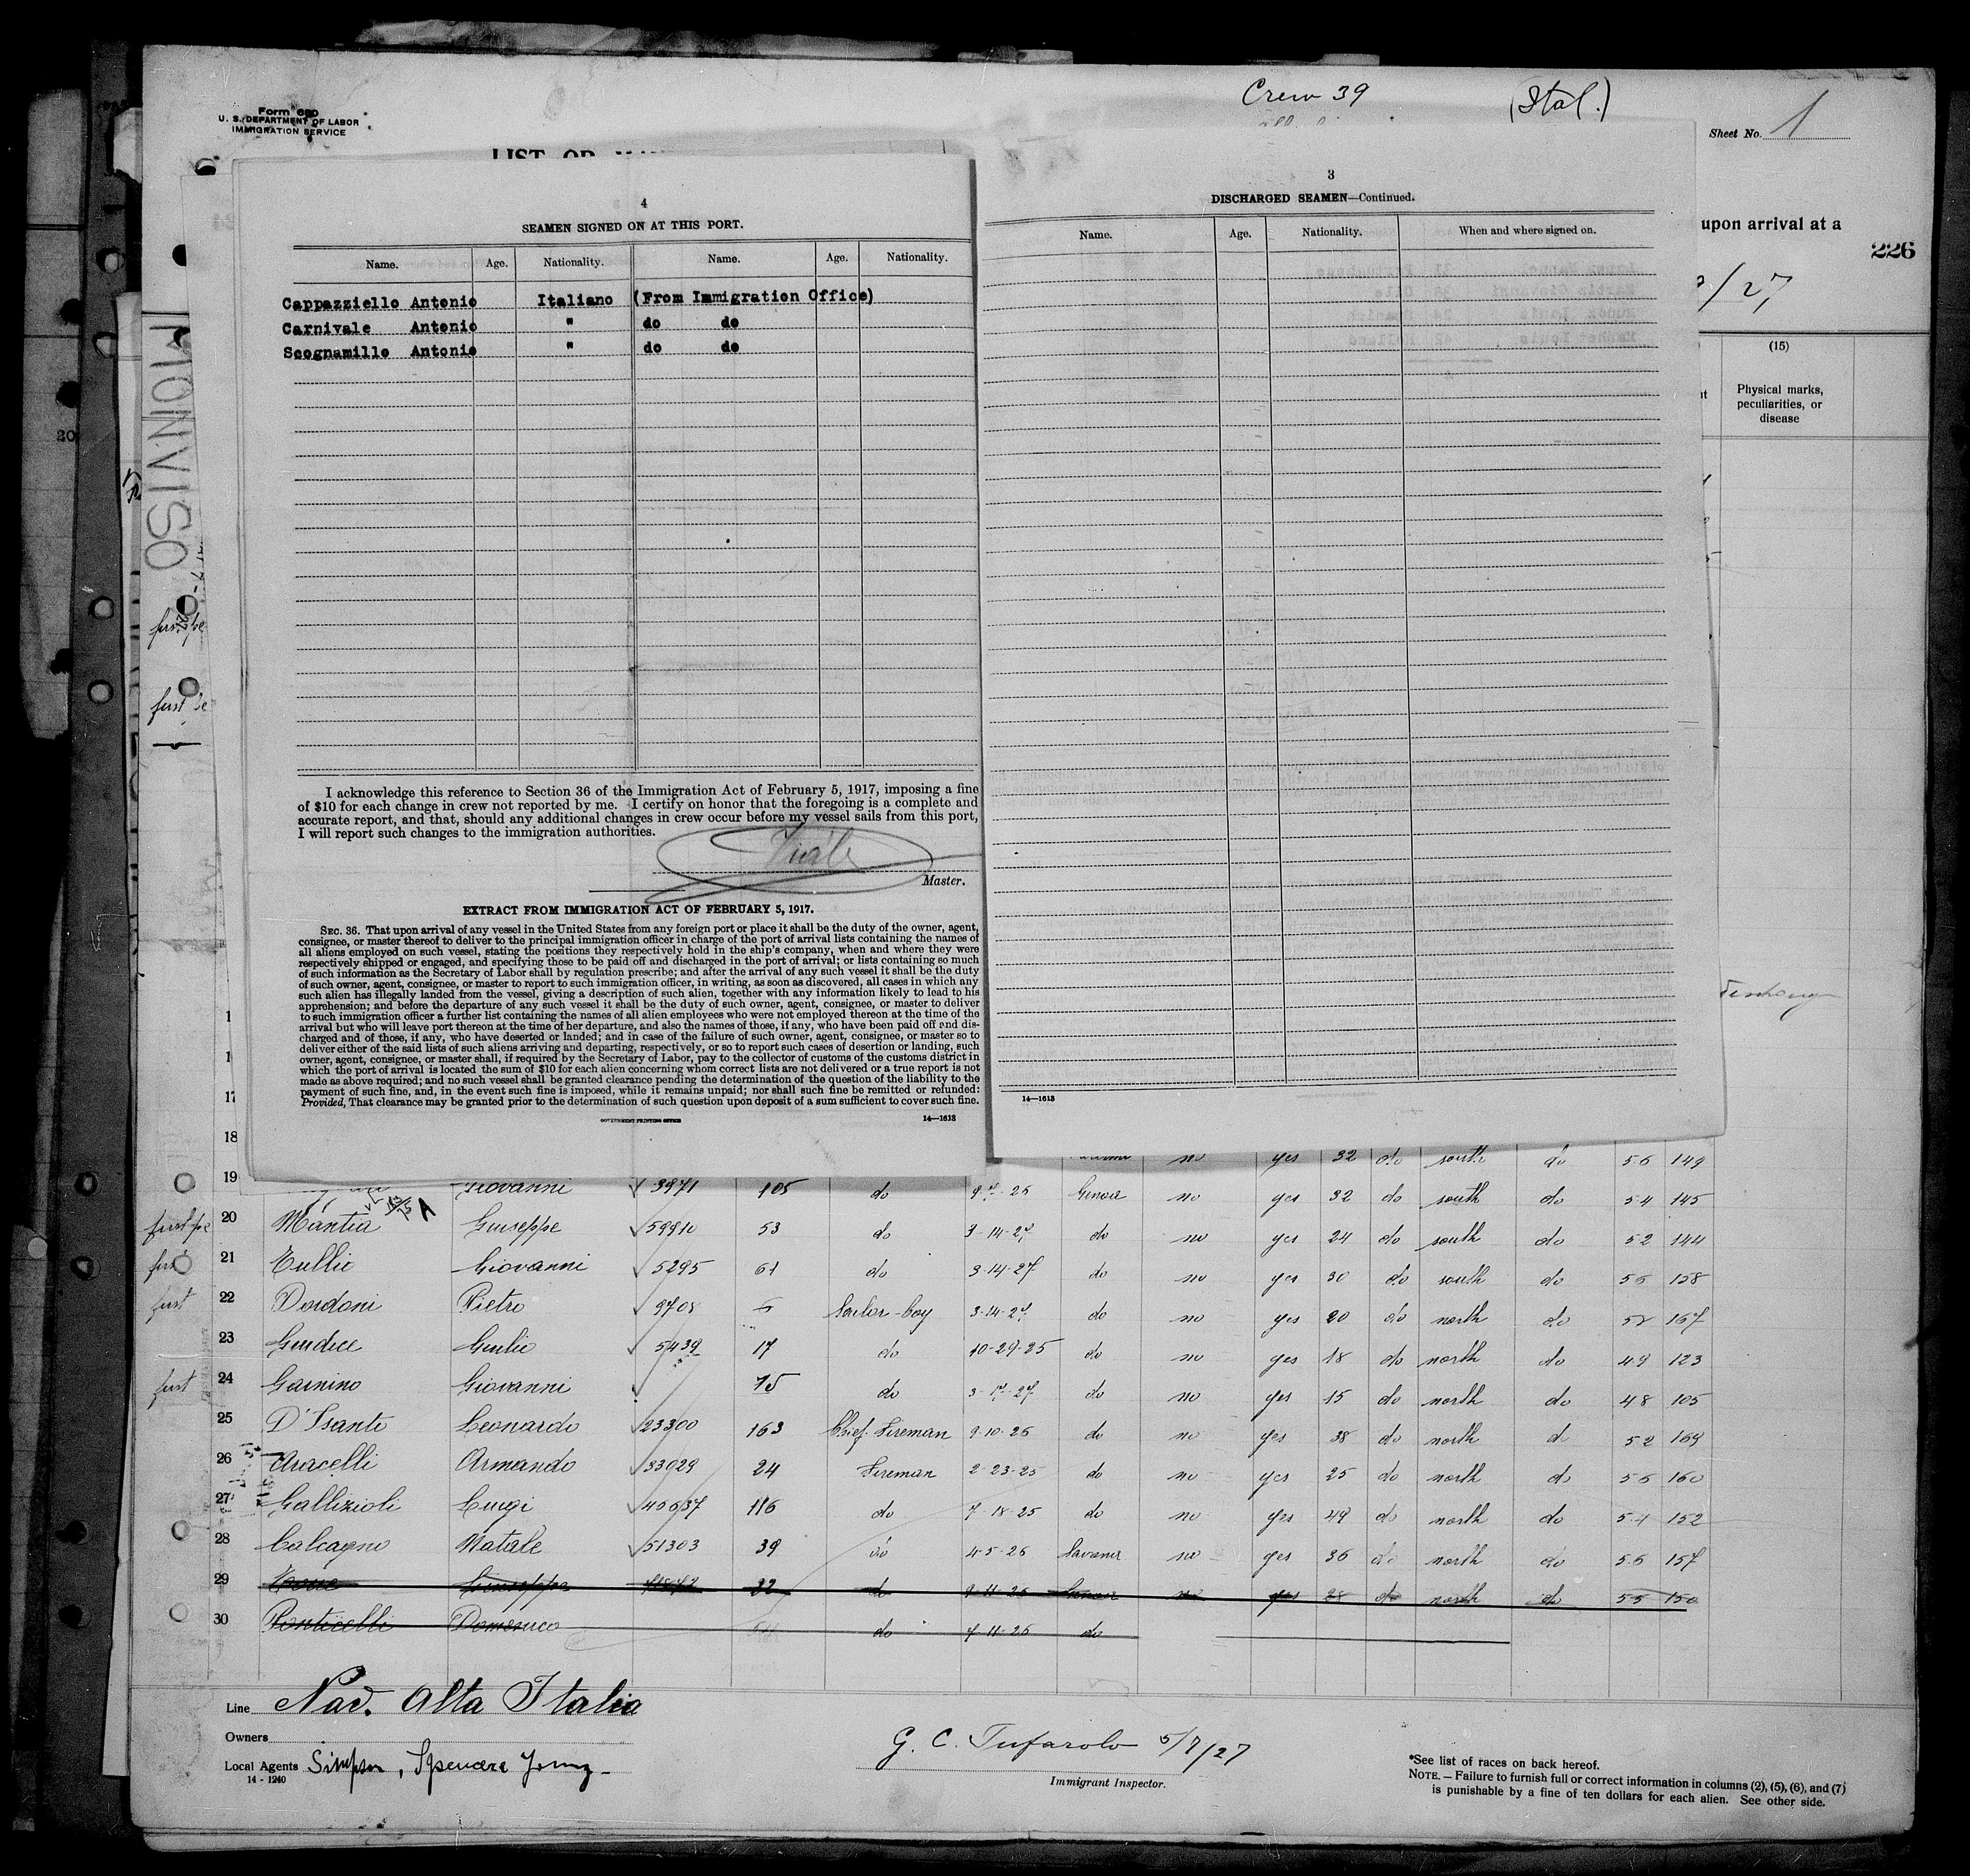 Form 680
U. S. DEPARTMENT OF LABOR
IMMIGRATION SERVICE
Crew 39 (Ital.)
Sheet No. 1
upon arrival at a
226
/27
MONVISO
(15)
Physical marks,
peculiarities, or
disease
4
SEAMEN SIGNED ON AT THIS PORT.
Name. Age. Nationality. Name. Age. Nationality.
Cappazziello Antonio Italiano (From Immigration Office)
Carnivale Antonio " do do
Scognamillo Antonio " do do
I acknowledge this reference to Section 36 of the Immigration Act of February 5, 1917, imposing a fine
of $10 for each change in crew not reported by me. I certify on honor that the foregoing is a complete and
accurate report, and that, should any additional changes in crew occur before my vessel sails from this port,
I will report such changes to the immigration authorities.
Master.
EXTRACT FROM IMMIGRATION ACT OF FEBRUARY 5, 1917.
SEC. 36. That upon arrival of any vessel in the United States from any foreign port or place it shall be the duty of the owner, agent,
consignee, or master thereof to deliver to the principal immigration officer in charge of the port of arrival lists containing the names of
all aliens employed on such vessel, stating the positions they respectively hold in the ship's company, when and where they were
respectively shipped or engaged, and specifying those to be paid off and discharged in the port of arrival; or lists containing so much
of such information as the Secretary of Labor shall by regulation prescribe; and after the arrival of any such vessel it shall be the duty
of such owner, agent, consignee, or master to report to such immigration officer, in writing, as soon as discovered, all cases in which any
such alien has illegally landed from the vessel, giving a description of such alien, together with any information likely to lead to his
apprehension; and before the departure of any such vessel it shall be the duty of such owner, agent, consignee, or master to deliver
to such immigration officer a further list containing the names of all alien employees who were not employed thereon at the time of the
arrival but who will leave port thereon at the time of her departure, and also the names of those, if any, who have been paid off and dis-
charged and of those, if any, who have deserted or landed; and in case of the failure of such owner, agent, consignee, or master so to
deliver either of the said lists of such aliens arriving and departing, respectively, or so to report such cases of desertion or landing, such
owner, agent, consignee, or master shall, if required by the Secretary of Labor, pay to the collector of customs of the customs district in
which the port of arrival is located the sum of $10 for each alien concerning whom correct lists are not delivered or a true report is not
made as above required; and no such vessel shall be granted clearance pending the determination of the question of the liability to the
payment of such fine, and, in the event such fine is imposed, while it remains unpaid; nor shall such fine be remitted or refunded:
Provided, That clearance may be granted prior to the determination of such question upon deposit of a sum sufficient to cover such fine.
GOVERNMENT PRINTING OFFICE 14—1613
3
DISCHARGED SEAMEN—Continued.
Name. Age. Nationality. When and where signed on.
14—1613
17
18 no yes 32 do south do 5 6 149
19 Giovanni 3971 105 do 9-7-26 Genoa no yes 32 do south do 5 4 145
20 Mantia Giuseppe 59910 53 do 3-14-27 do no yes 24 do south do 5 2 144
first 21 Tullio Giovanni 5295 61 do 3-14-27 do no yes 30 do south do 5 5 158
first 22 Dordoni Pietro 9708 Sailor-boy 3-14-27 do no yes 20 do north do 167
23 Giudice Giulio 5439 17 do 10-29-25 do no yes 18 do north do 4 9 123
first 24 Garnino Giovanni 15 do 3-17-27 do no yes 15 do north do 4 8 105
25 D'Isanti Leonardo 23300 163 Chief Fireman 9-10-26 do no yes 38 do north d 5 2 169
26 Aracelli Armando 33029 24 Fireman 2-23-25 do no yes 25 do north do 5 5 160
27 Gallizioli Luigi 40637 116 do 7-18-25 do no yes 49 do north do 5 4 152
28 Calcagno Natale 51303 39 do 4-5-26 Savona no yes 36 do north do 5 6 157
29 Giuseppe 32 do 9-11-26 Genoa no yes 28 do north do 5 5 150
30 Ponticelli Domenico do 4-11-26 do
Line Nav. Alta Italia
Owners
Local Agents Simpson, Spencer & Young
14 - 1240
G. C. Tufarolo 5/7/27
Immigrant Inspector.
*See list of races on back hereof.
NOTE.—Failure to furnish full or correct information in columns (2), (5), (6), and (7)
is punishable by a fine of ten dollars for each alien. See other side.